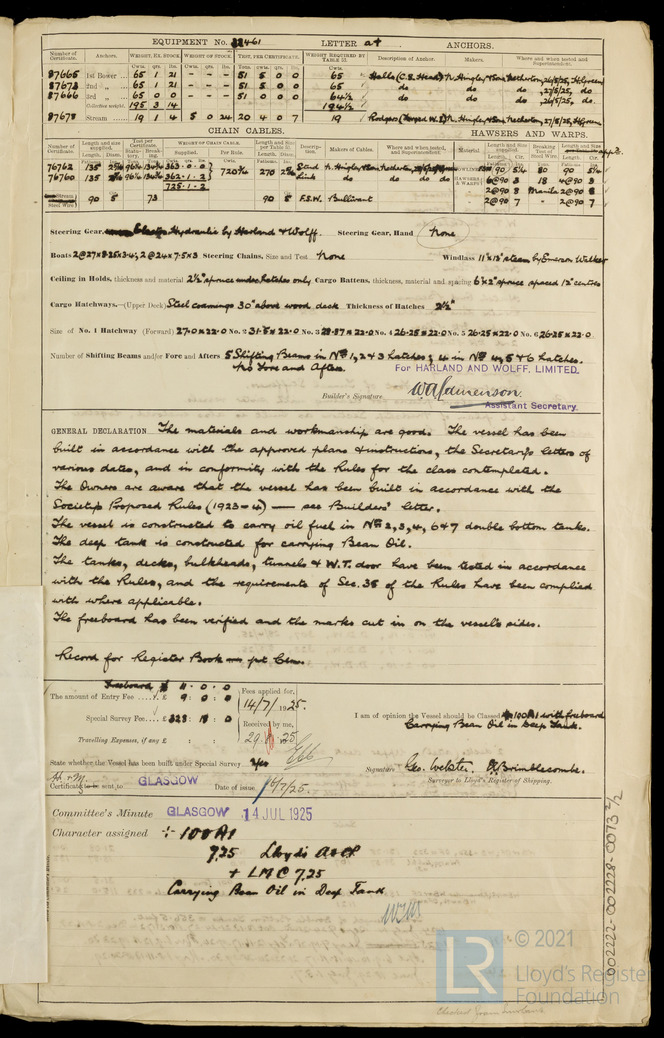 EQUIPMENT No. 461 LETTER at ANCHORS.
Number of Certificate. Anchors. WEIGHT, EX. STOCK. WEIGHT OF STOCK. TEST, PER CERTIFICATE. WEIGHT REQUIRED BY TABLE 31. Description of Anchor. Makers. Where and when tested and Superintendent.
87665 1st Bower 65 1 21 - - - 51 5 0 0 65
87673 2nd " 65 1 21 - - - 51 5 0 0 65 do do do
87666 3rd " 65 0 0 - - - 51 0 0 0 64½ do do do
Collective weight. 195 3 14 194½
87678 Stream 19 1 4 5 0 24 20 4 0 7 19
CHAIN CABLES. HAWSERS AND WARPS.
Number of Certificate. Length and size supplied. Test per Certificate WEIGHT OF CHAIN CABLE. Supplied. Per Rule. Length and Size per Table 31. Description. Makers of Cables. Where and when tested, and Superintendent. Material Length and Size supplied. Breaking Test of Steel Wire. Length and Size
76762 135 363.0.0 720¾ 270 Stud
76760 135 362.1.2 Link do do do
725.1.2
Steel Wire 90 5 73 90 5 F.S.W. Bullivant
90 5¼ 80 90 5¼
6@90 3 18 4@90 3
2@90 8 Manila 2@90 8
2@90 7 - 2@90 7
Steering Gear, Hydraulic by Harland & Wolff. Steering Gear, Hand None
Boats 2@27x8.25x3.4; 2@24x7.5x3 Steering Chains, Size and Test None Windlass 11"x12" steam by Emerson Walker
Ceiling in Holds, thickness and material 2½" spruce under hatches only Cargo Battens, thickness, material and spacing 6"x2" spruce spaced 12" centres
Cargo Hatchways.—(Upper Deck) Steel coamings 30" above wood deck Thickness of Hatches 2½"
Size of No. 1 Hatchway (Forward) 27.0x22.0 No. 2 31.5x22.0 No. 3 28.87x22.0 No. 4 26.25x22.0 No. 5 26.25x22.0 No. 6 26.25x22.0
Number of Shifting Beams and/or Fore and Afters 5 Shifting Beams in Nos 1, 2 & 3 hatches; 4 in Nos 4, 5 & 6 hatches.
No Fore and Afters. For HARLAND AND WOLFF, LIMITED.
Builder's Signature
Assistant Secretary.
GENERAL DECLARATION The materials and workmanship are good. The vessel has been
built in accordance with the approved plans & instructions, the Secretary's letters of
various dates, and in conformity with the Rules for the class contemplated.
The Owners are aware that the vessel has been built in accordance with the
Society's Proposed Rules (1923-4) — see Builders' letter.
The vessel is constructed to carry oil fuel in Nos 2, 3, 4, 6 & 7 double bottom tanks.
The deep tank is constructed for carrying Bean Oil.
The tanks, decks, bulkheads, tunnels & W.T. door have been tested in accordance
with the Rules, and the requirements of Sec. 35 of the Rules have been complied
with where applicable.
The freeboard has been verified and the marks cut in on the vessel's sides.
Record for Register Book
Freeboard £ 11 . 0 . 0
The amount of Entry Fee .... £ 9 : 0 : 0 Fees applied for, 14/7/1925.
Special Survey Fee .... £ 328 : 18 : 0 Received by me,
Travelling Expenses, if any £ : :
I am of opinion the Vessel should be Classed 100A1 with freeboard
Carrying Bean Oil in Deep Tank.
State whether the Vessel has been built under Special Survey Yes
Signature Geo. Webster. Brimblecombe.
Surveyor to Lloyd's Register of Shipping.
Certificate to be sent to GLASGOW Date of issue
Committee's Minute GLASGOW 14 JUL 1925
Character assigned 100A1
7.25 Lloyd's A&CP
+ LMC 7.25
Carrying Bean Oil in Deep Tank
002222-002228-0073 2/2
LR © 2021
Lloyd's Register
Foundation